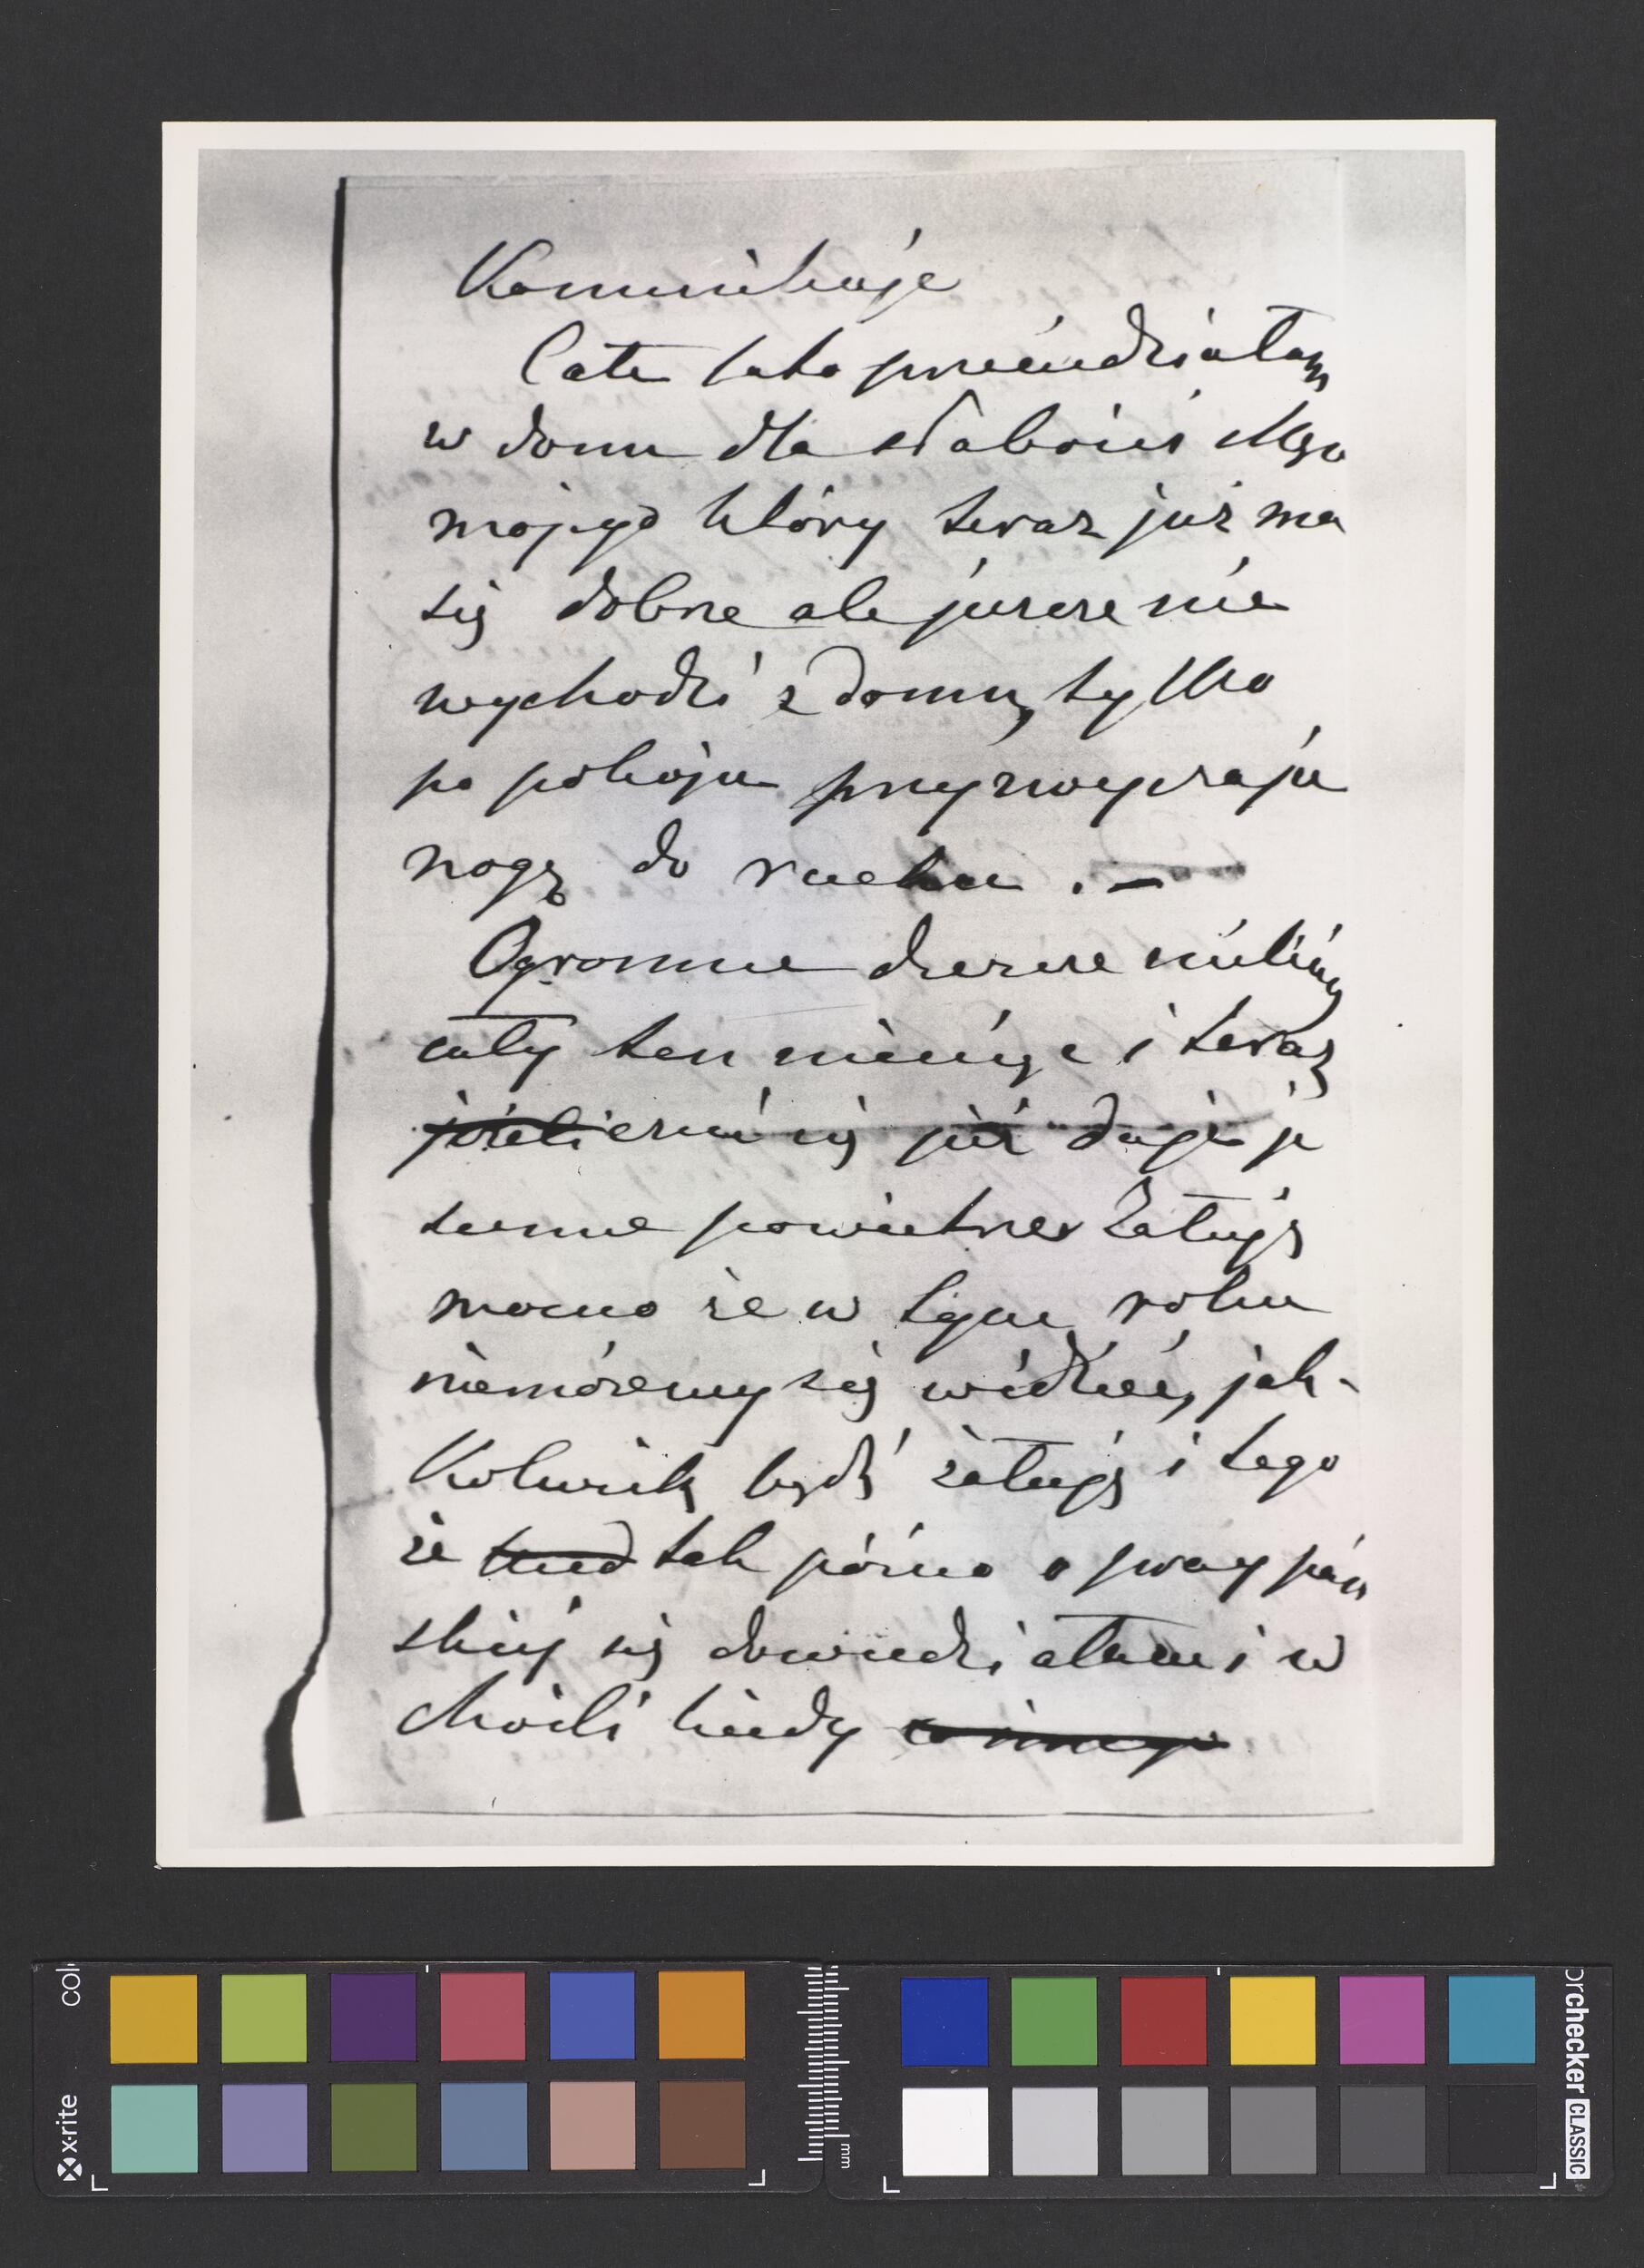 Komunikuje
Całe lato przesiedziałam
w domu dla słabości Mgo
mojego który teraz już ma
się dobrze ale jeszcze nie
wychodzi z domu, tylko
po pokoju przyzwyczaja
nogę do ruchu . –
Ogromne deszcze mieliśmy
cały ten miesiąc i teraz
już daje je
sienne powietrze Żałuję
mocno że w tym roku
niemożemy się widzieć, jak-
Kolwiek bądź żałuję i tego
że tak późno o spraw pań
skiej się dowiedziałam i w
chwili kiedy
x-rite
colorchecker CLASSIC
mm